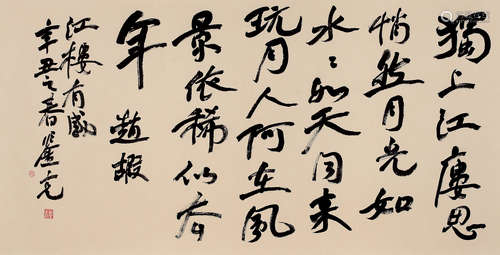 獨上江廔思
悄然月光如
水〻如天同来
玩月人何在風
景依稀似去
年 趙嘏
江楼有感
辛丑之春